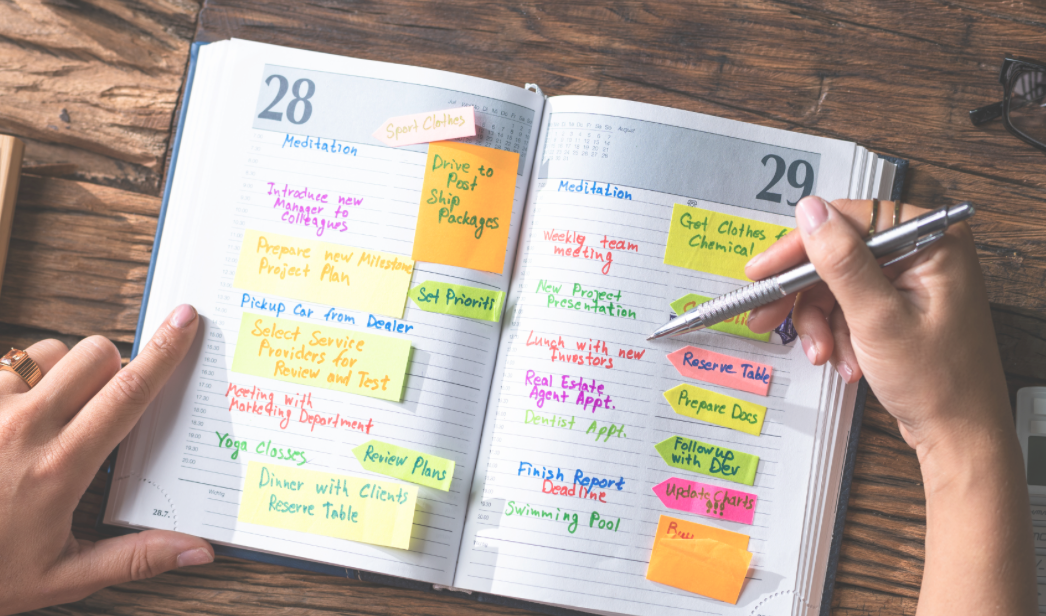 28
Sport Clothes
Meditation
Drive to
Post
Ship
Packages
Introduce new
Manager to
Colleagues
Prepare new Milestone
Project Plan
Set Prioriti
Pickup Car from Dealer
Select Service
Providers for
Review and Test
Meeting with
Marketing Department
Yoga Classes
Review Plans
Dinner with Clients
Reserve Table
28.7.
August
29
Meditation
Get Clothes
Chemical
Weekly team
meeting
New Project
Presentation
Lunch with new
Investors
Reserve Table
Real Estate
Agent Appt.
Prepare Docs
Dentist Appt.
Followup
with Dev
Finish Report
Deadline
Update Charts
!!!
Swimming Pool